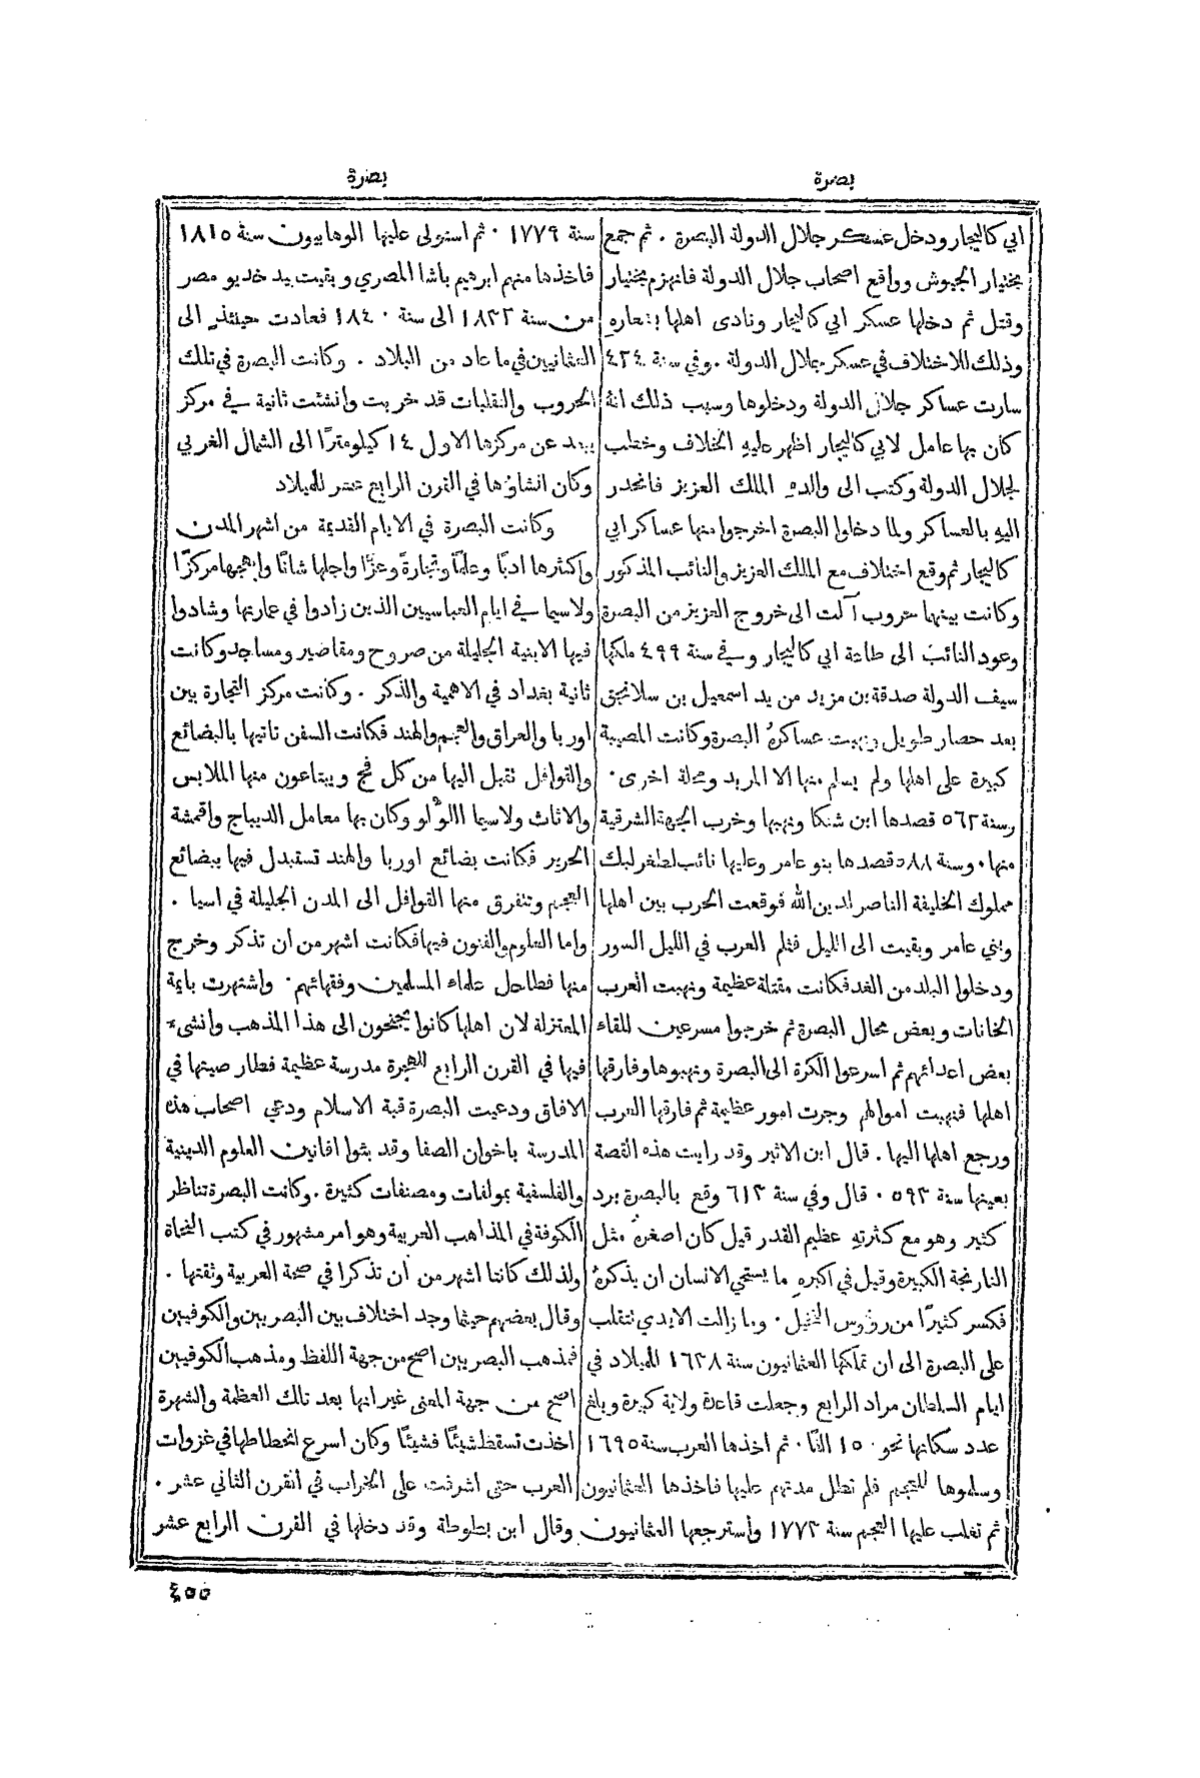 بصرة
ابي كاليجار ودخل عسكر جلال الدولة البصرة . ثم جمع
بختيار الجيوش وواقع اصحاب جلال الدولة فانهزم بختيار
وقتل ثم دخلها عسكر ابي كاليجار ونادى اهلها بشعاره
وذلك للاختلاف في عسكر جلال الدولة . وفي سنة ٤٢٤
سارت عساكر جلال الدولة ودخلوها وسبب ذلك انهُ
كان بها عامل لابي كاليجار اظهر عليهِ الخلاف وخطب
لجلال الدولة وكتب الى والدهِ الملك العزيز فانحدر
اليهِ بالعساكر ولما دخلوا البصرة اخرجوا منها عساكر ابي
كاليجار ثم وقع اختلاف مع الملك العزيز والنائب المذكور
وكانت بينهما حروب آلت الى خروج العزيز من البصرة
وعود النائب الى طاعة ابي كاليجار وفي سنة ٤٩٩ ملكها
سيف الدولة صدقة بن مزيد من يد اسمعيل بن سلانجق
بعد حصار طويل ونهبت عساكرهُ البصرة وكانت المصيبة
كبيرة على اهلها ولم يسلم منها الا المربد ومحلة اخرى .
وسنة ٥٦٢ قصدها ابن شنكا ونهبها وخرب الجهة الشرقية
منها . وسنة ٥٨٨ قصدها بنو عامر وعليها نائب لطغرلبك
مملوك الخليفة الناصر لدين الله فوقعت الحرب بين اهلها
وبني عامر وبقيت الى الليل فثلم العرب في الليل السور
ودخلوا البلد من الغد فكانت مقتلة عظيمة ونهبت العرب
الخانات وبعض محال البصرة ثم خرجوا مسرعين للقاء
بعض اعدائهم ثم اسرعوا الكرة الى البصرة ونهبوها وفارقها
اهلها فنهبت اموالهم وجرت امور عظيمة ثم فارقها العرب
ورجع اهلها اليها . قال ابن الاثير وقد رايت هذه القصة
بعينها سنة ٥٩٣ . قال وفي سنة ٦١٣ وقع بالبصرة برد
كثير وهو مع كثرتهِ عظيم القدر قيل كان اصغرهُ مثل
النارنجة الكبيرة وقيل في اكبرهِ ما يستحي الانسان ان يذكرهُ
فكسر كثيرًا من رؤوس النخيل . وما زالت الايدي تتقلب
على البصرة الى ان تملكها العثمانيون سنة ١٦٣٨ للميلاد في
ايام السلطان مراد الرابع وجعلت قاعدة ولاية كبيرة وبلغ
عدد سكانها نحو ١٥٠ الفًا . ثم اخذها العرب سنة ١٦٩٥
وسلموها للعجم فلم تطل مدتهم عليها فاخذها العثمانيون
ثم تغلب عليها العجم سنة ١٧٧٣ واسترجعها العثمانيون
بصرة
سنة ١٧٧٩ . ثم استولى عليها الوهابيون سنة ١٨١٥
فاخذها منهم ابرهيم باشا المصري وبقيت بيد خديو مصر
من سنة ١٨٣٢ الى سنة ١٨٤٠ فعادت حينئذٍ الى
العثمانيين في ما عاد من البلاد . وكانت البصرة في تلك
الحروب والتقلبات قد خربت وانشئت ثانية في مركز
يبعد عن مركزها الاول ١٤ كيلومترًا الى الشمال الغربي
وكان انشاؤها في القرن الرابع عشر للميلاد
وكانت البصرة في الايام القديمة من اشهر المدن
واكثرها ادبًا وعلمًا وتجارةً وعزًّا واجلها شانًا وابهجها مركزًا
ولاسيما في ايام العباسيين الذين زادوا في عمارتها وشادوا
فيها الابنية الجليلة من صروح ومقاصير ومساجد وكانت
ثانية بغداد في الاهمية والذكر . وكانت مركز التجارة بين
اوربا والعراق والعجم والهند فكانت السفن تاتيها بالبضائع
والقوافل تقبل اليها من كل فج ويبتاعون منها الملابس
والاثاث ولاسيما اللؤلو وكان بها معامل الديباج واقمشة
الحرير فكانت بضائع اوربا والهند تستبدل فيها ببضائع
العجم وتتفرق منها القوافل الى المدن الجليلة في اسيا .
واما العلوم والفنون فيها فكانت اشهر من ان تذكر وخرج
منها فطاحل علماء المسلمين وفقهائهم . واشتهرت بايمة
المعتزلة لان اهلها كانوا يجنحون الى هذا المذهب وانشئ
فيها في القرن الرابع للهجرة مدرسة عظيمة فطار صيتها في
الافاق ودعيت البصرة قبة الاسلام ودعي اصحاب هذه
المدرسة باخوان الصفا وقد بثوا افانين العلوم الدينية
والفلسفية بمولفات ومصنفات كثيرة . وكانت البصرة تناظر
الكوفة في المذاهب العربية وهو امر مشهور في كتب النحاة
ولذلك كانتا اشهر من ان تذكرا في صحة العربية وثقتها .
وقال بعضهم حيثما وجد اختلاف بين البصريين والكوفيين
فمذهب البصريين اصح من جهة اللفظ ومذهب الكوفيين
اصح من جهة المعنى غير انها بعد تلك العظمة والشهرة
اخذت تسقط شيئًا فشيئًا وكان اسرع انحطاطها في غزوات
العرب حتى اشرفت على الخراب في القرن الثاني عشر .
وقال ابن بطوطة وقد دخلها في القرن الرابع عشر
٤٥٥